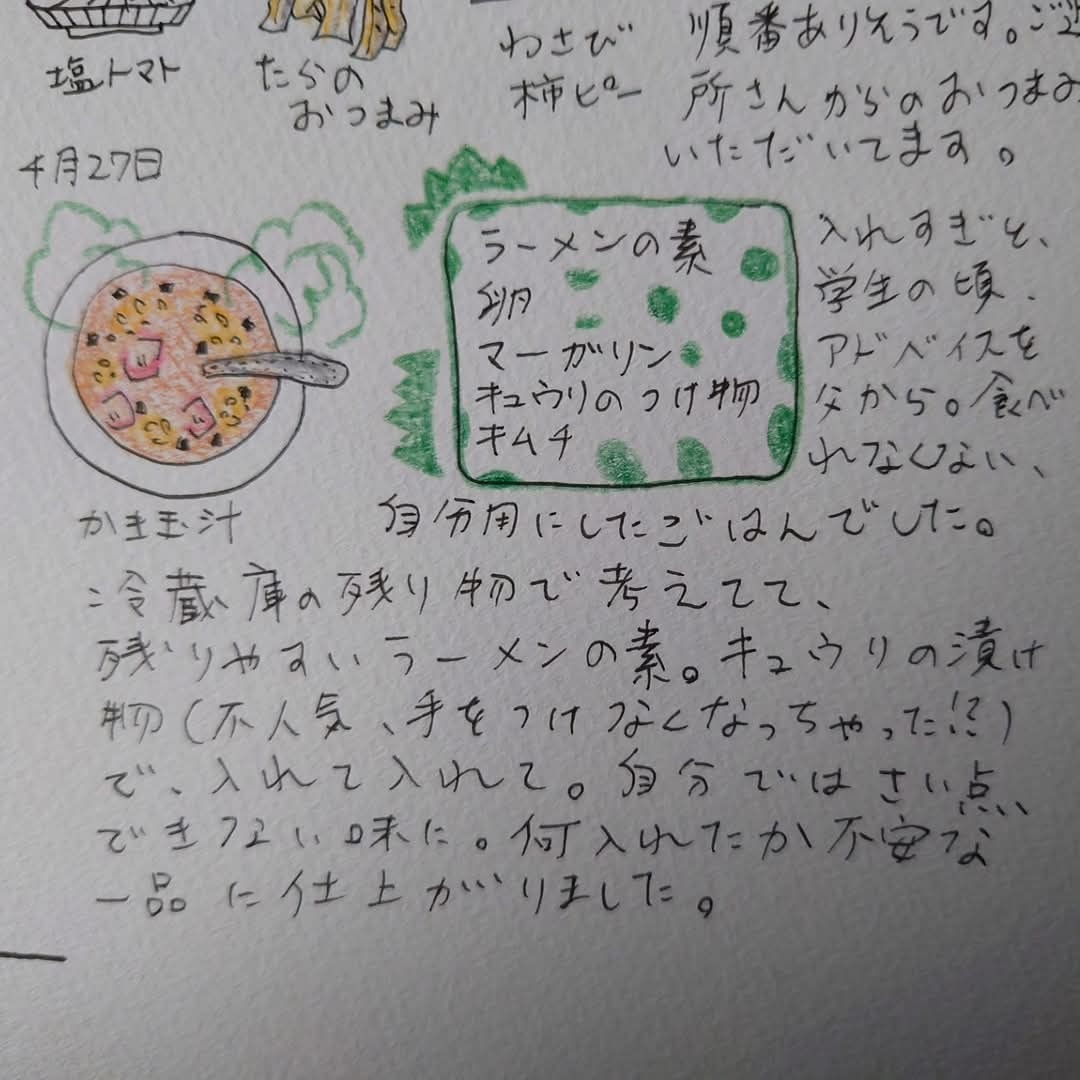 塩トマト
たらの
おつまみ
わさび
柿ピー
順番ありそうです。ご近
所さんからのおつまみ
いただいてます。
4月27日
ラーメンの素
卵
マーガリン
キュウリのつけ物
キムチ
かき玉汁
入れすぎと、
学生の頃、
アドバイスを
父から。食べ
れなくない、
自分用にしたごはんでした。
冷蔵庫の残り物で考えてて、
残りやすいラーメンの素。キュウリの漬け
物(不人気、手をつけなくなっちゃった!?)
で、入れて入れて。自分ではさい点
できない味に。何入れたか不安な
一品に仕上がりました。